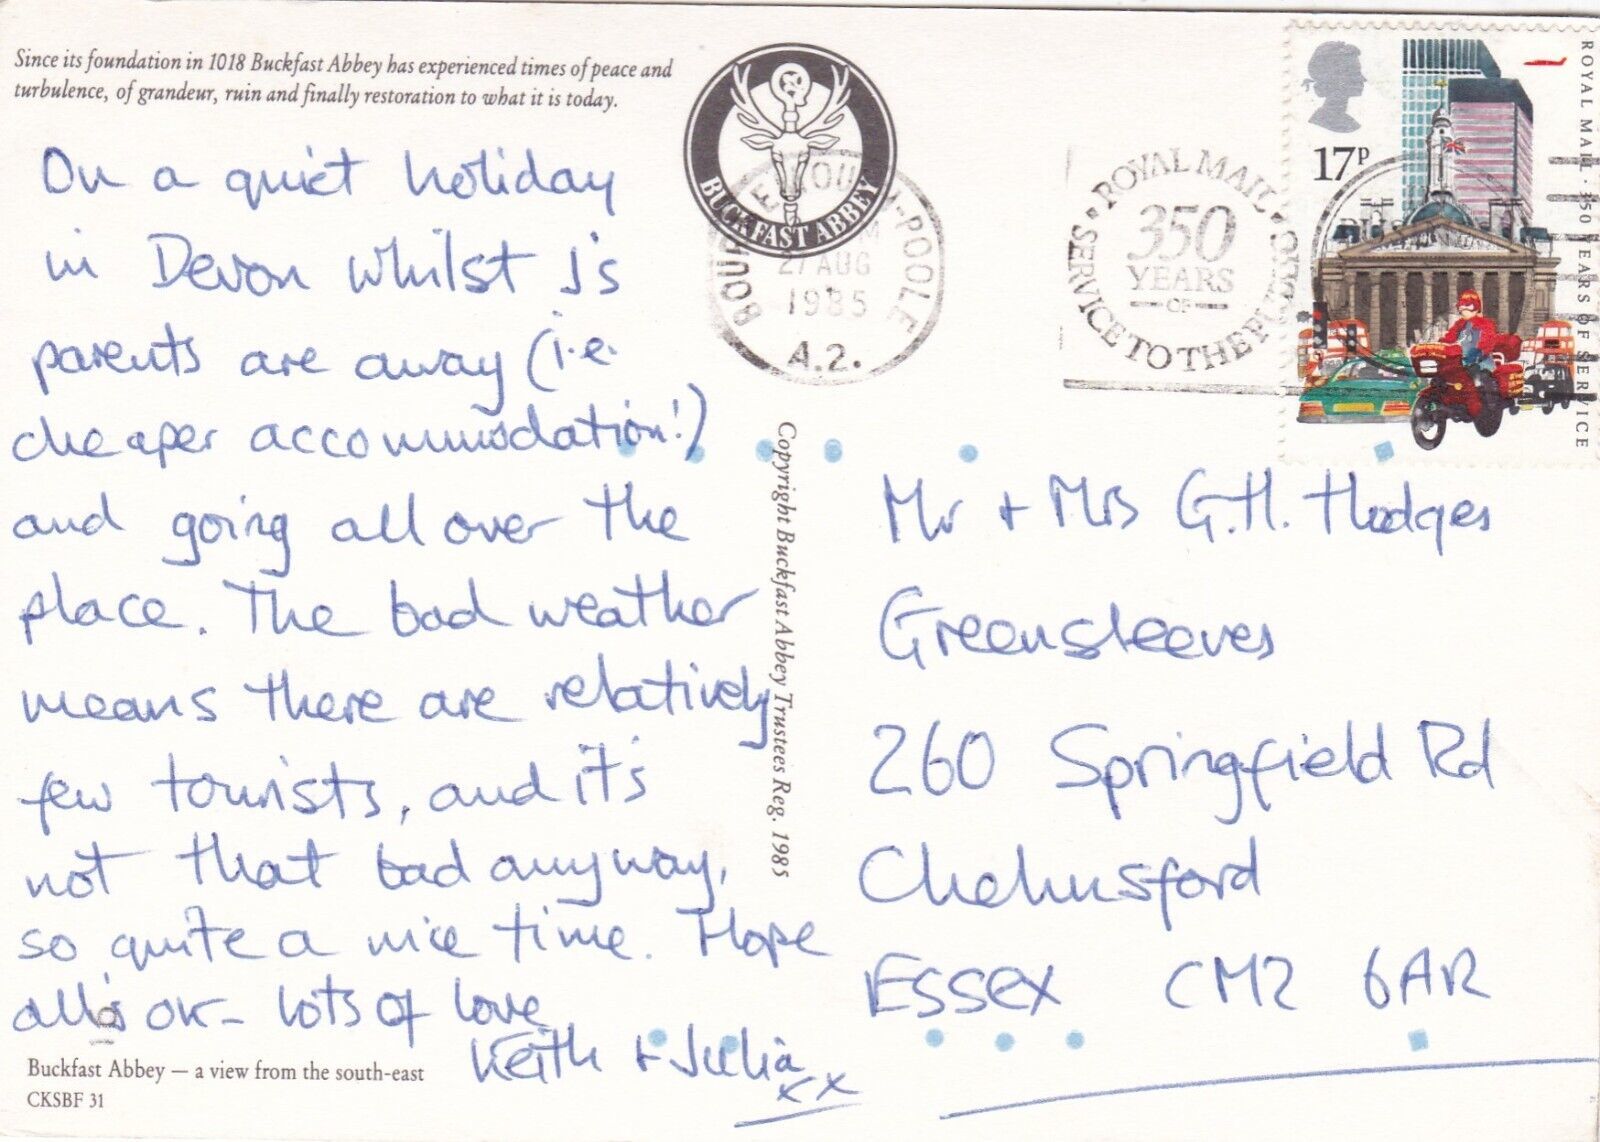 Since its foundation in 1018 Buckfast Abbey has experienced times of peace and
turbulence, of grandeur, ruin and finally restoration to what it is today.
On a quiet holiday
in Devon whilst J's
parents are away (i.e.
cheaper accommodation!)
and going all over the
place. The bad weather
means there are relatively
few tourists, and it's
not that bad anyway,
so quite a nice time. Hope
all's OK - lots of love
Keith + Julia
xx
Buckfast Abbey — a view from the south-east
CKSBF 31
BUCKFAST ABBEY
BOURNEMOUTH-POOLE
27 AUG
1985
A.2.
Copyright Buckfast Abbey Trustees Reg. 1985
ROYAL MAIL
350
YEARS
OF
SERVICE TO THE PUBLIC
17P
ROYAL MAIL · 350 YEARS OF SERVICE
Mr + Mrs G.H. Hodges
Greensleeves
260 Springfield Rd
Chelmsford
Essex CM2 6AR